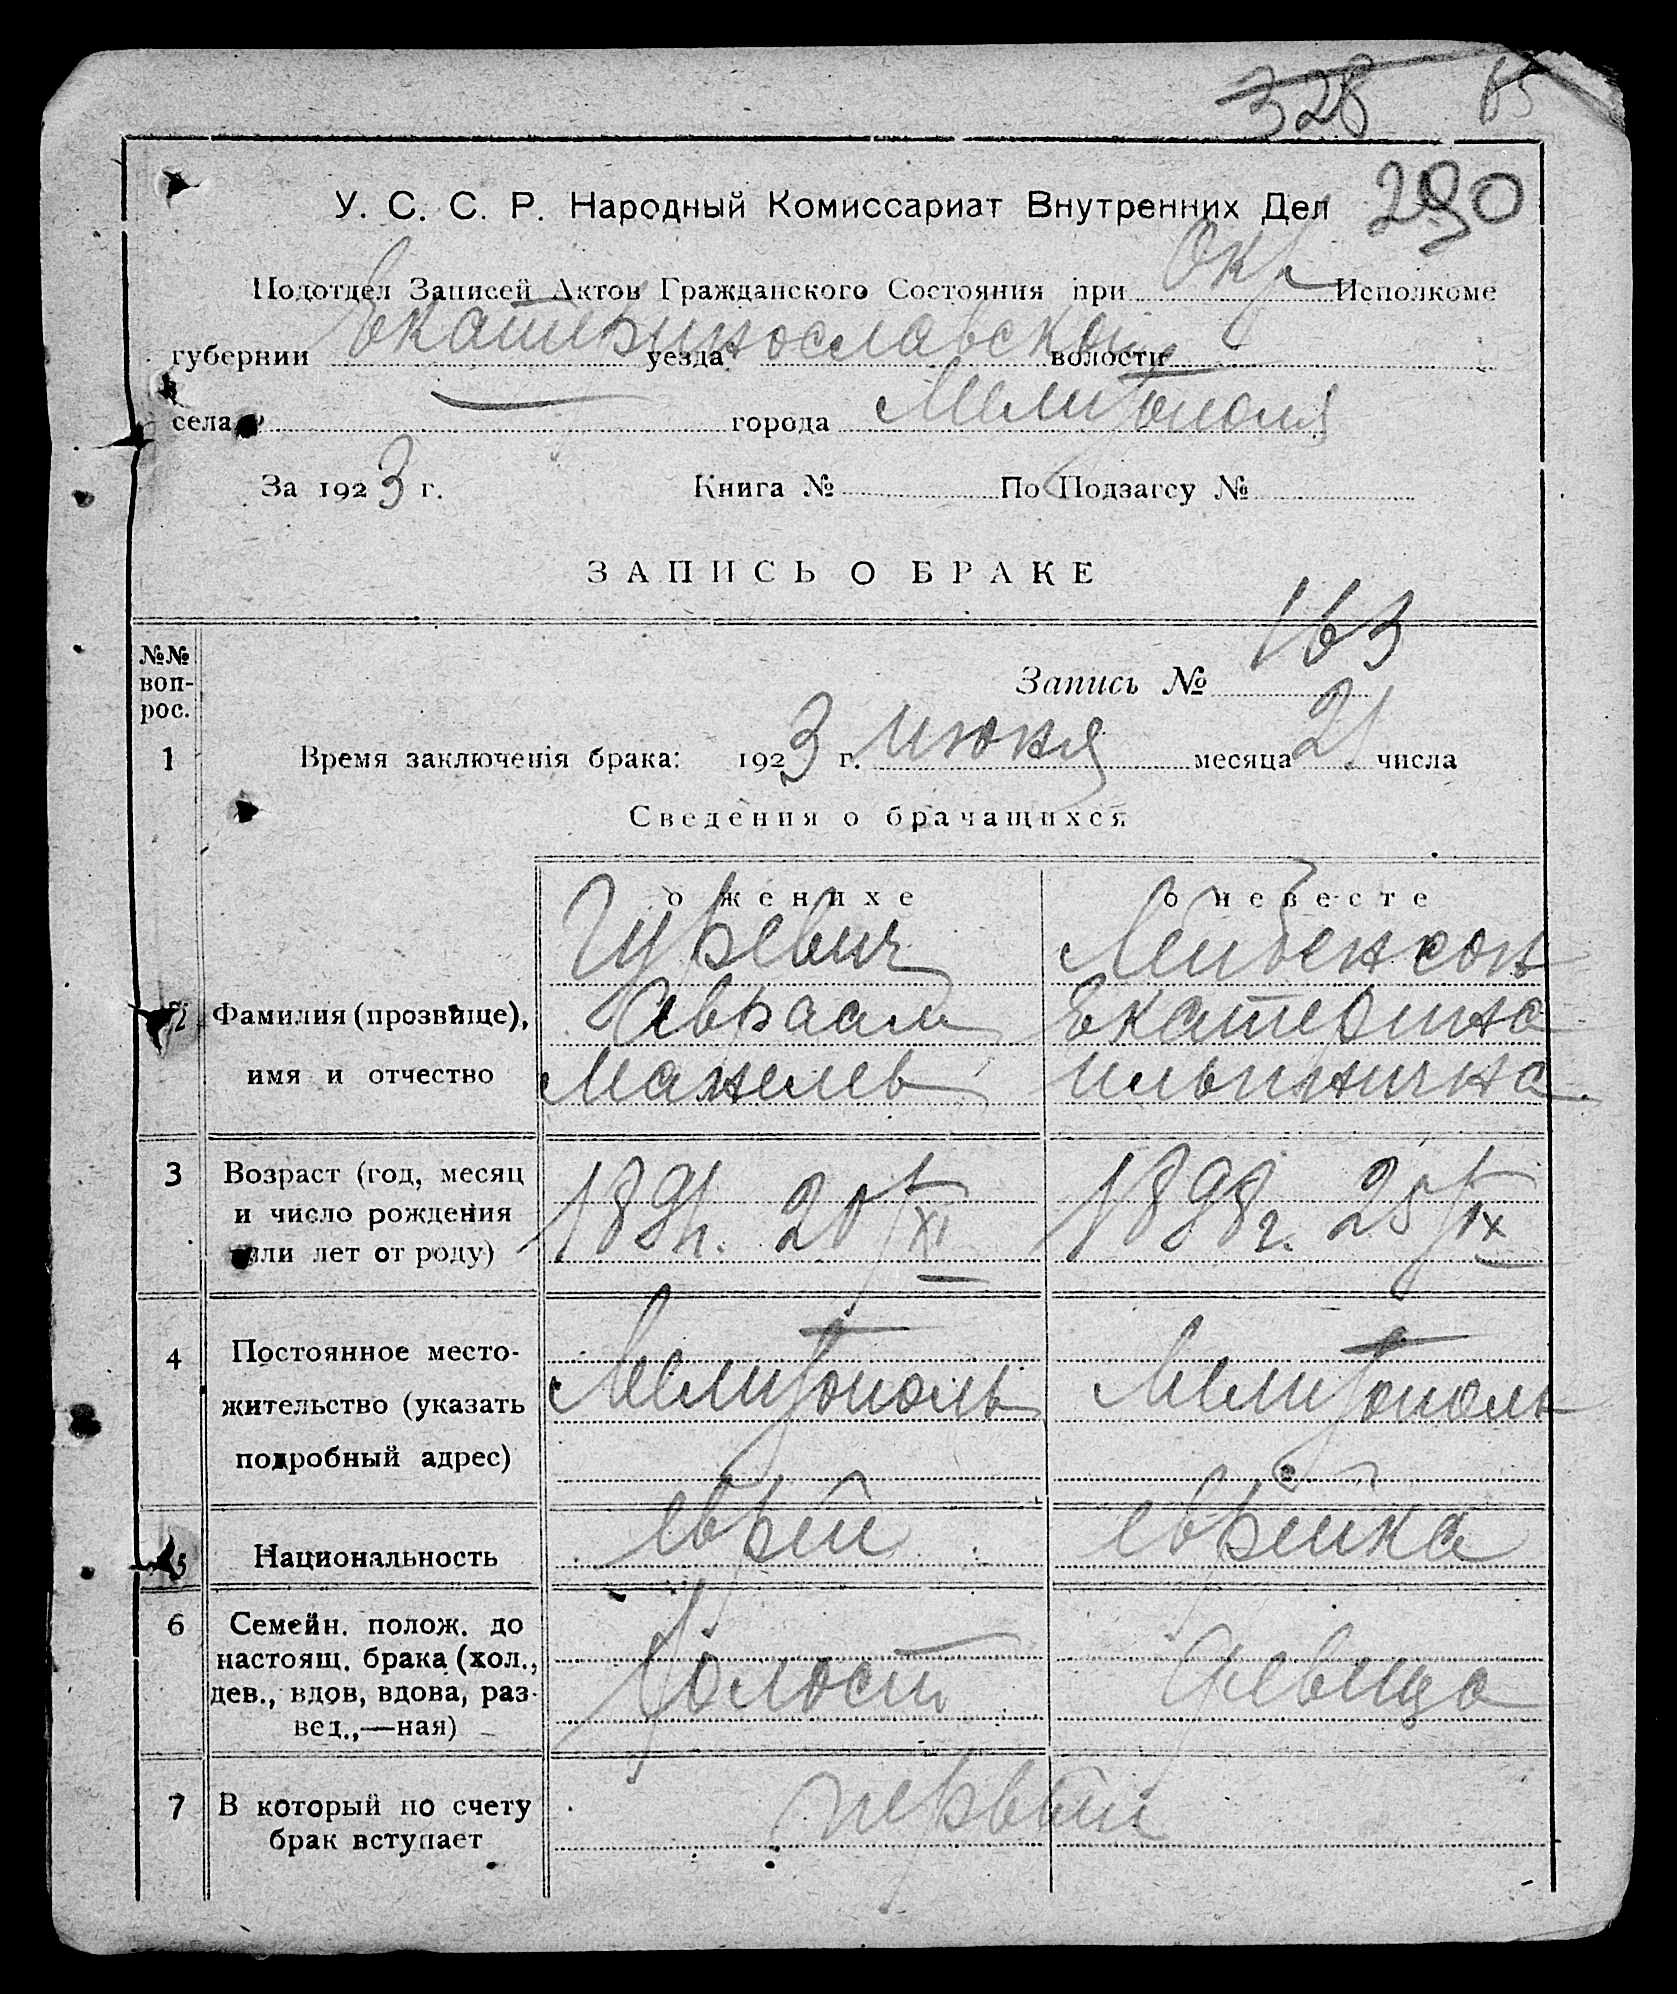 328 65
У. С. С. Р. Народный Комиссариат Внутренних Дел 290
Подотдел Записей Актов Гражданского Состояния при Окр Исполкоме
губернии Екатеринославской уезда волости
села города Мелитополя
За 1923 г. Книга № По Подзагсу №
ЗАПИСЬ О БРАКЕ
№№ воп-рос.
Запись № 163
1 Время заключенія брака: 1923 г. июня месяца 21 числа
Сведения о брачащихся
о женихе о невесте
Гуревич Лейбенсон
2 Фамилия (прозвище), Авраам Екатерина
имя и отчество Манелев Ильинична
3 Возраст (год, месяц
и число рождения 189 г. 20/XI 1898 г. 25/IX
или лет от роду)
4 Постоянное место-
жительство (указать Мелитополь Мелитополь
подробный адрес)
5 Национальность еврей еврейка
6 Семейн. полож. до
настоящ. брака (хол., Холост девица
дев., вдов, вдова, раз-
вед.,—ная)
7 В который по счету первый
брак вступает